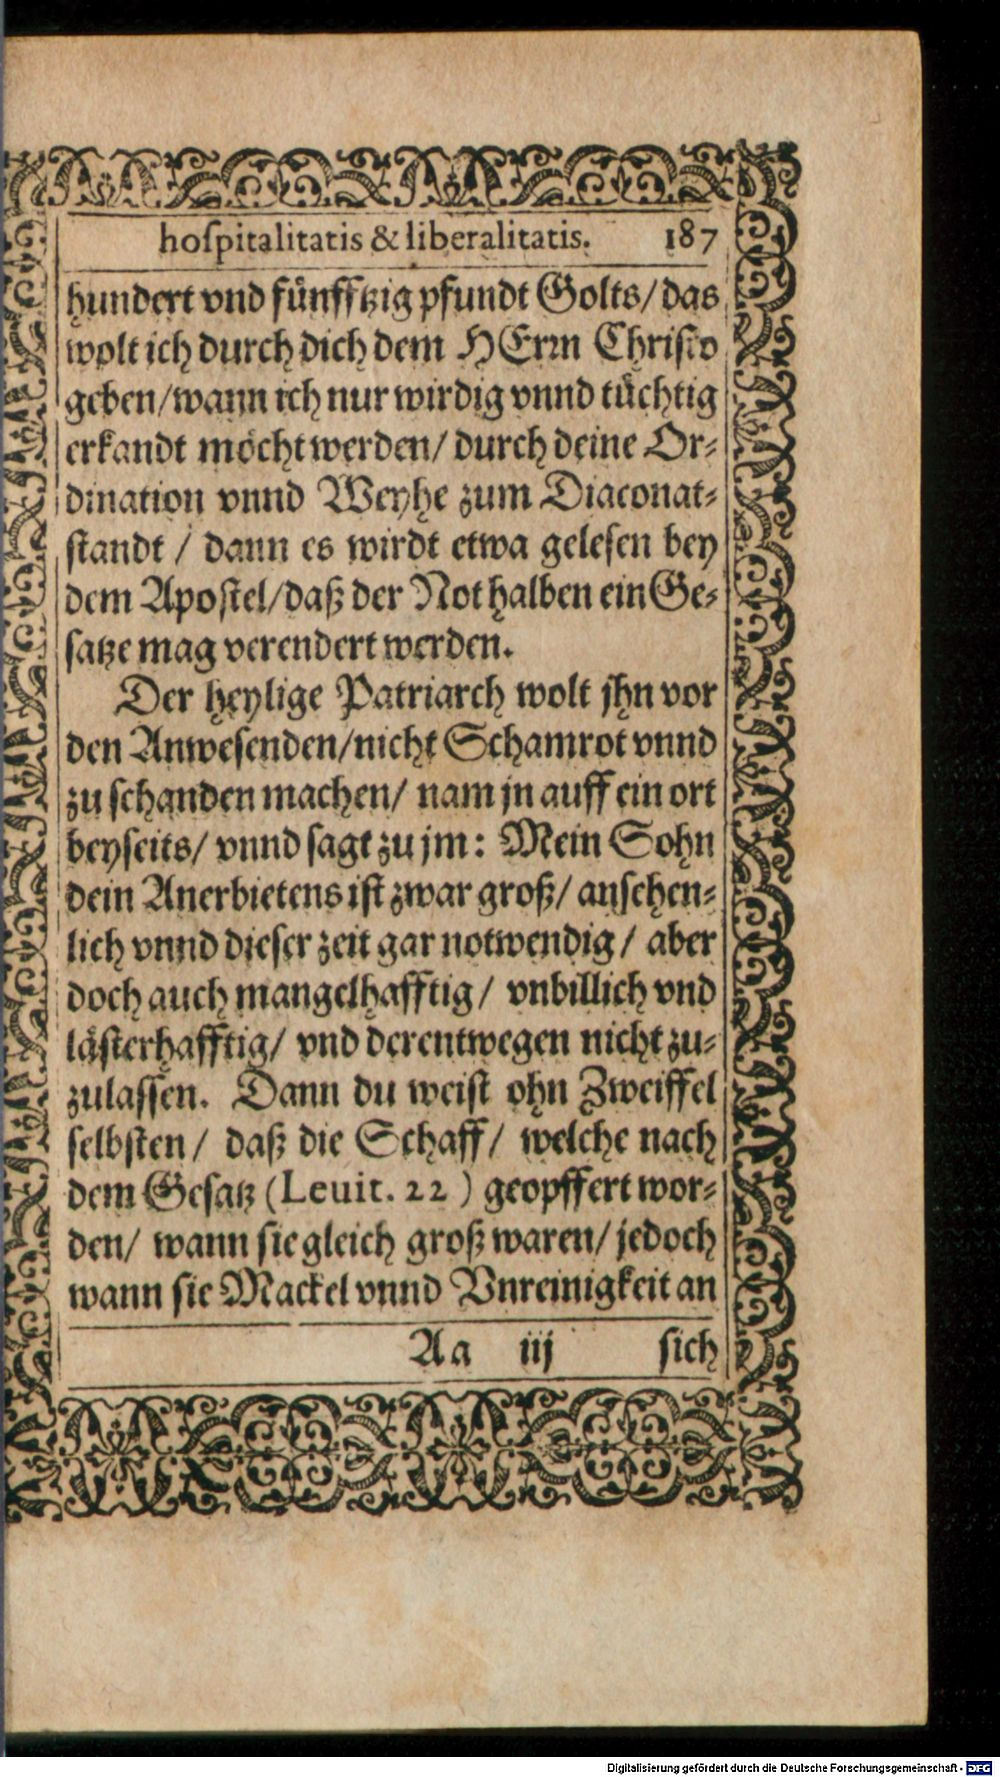 hospitalitatis & liberalitatis. 187
hundert vnd fünfftzig pfundt Golts/das
wolt ich durch dich dem HErrn Christo
geben/wann ich nur wirdig vnnd tüchtig
erkandt möcht werden/ durch deine Or-
dination vnnd Weyhe zum Diaconat-
standt / dann es wirdt etwa gelesen bey
dem Apostel/daß der Not halben ein Ge-
satze mag verendert werden.
Der heylige Patriarch wolt jhn vor
den Anwesenden/nicht Schamrot vnnd
zu schanden machen/ nam jn auff ein ort
beyseits/ vnnd sagt zu jm: Mein Sohn
dein Anerbietens ist zwar groß/ ansehen-
lich vnnd dieser zeit gar notwendig / aber
doch auch mangelhafftig/ vnbillich vnd
lästerhafftig/ vnd derentwegen nicht zu-
zulassen. Dann du weist ohn Zweiffel
selbsten/ daß die Schaff/ welche nach
dem Gesatz (Leuit. 22) geopffert wor-
den/ wann sie gleich groß waren/ jedoch
wann sie Mackel vnnd Vnreinigkeit an
Aa iij sich
Digitalisierung gefördert durch die Deutsche Forschungsgemeinschaft - DFG